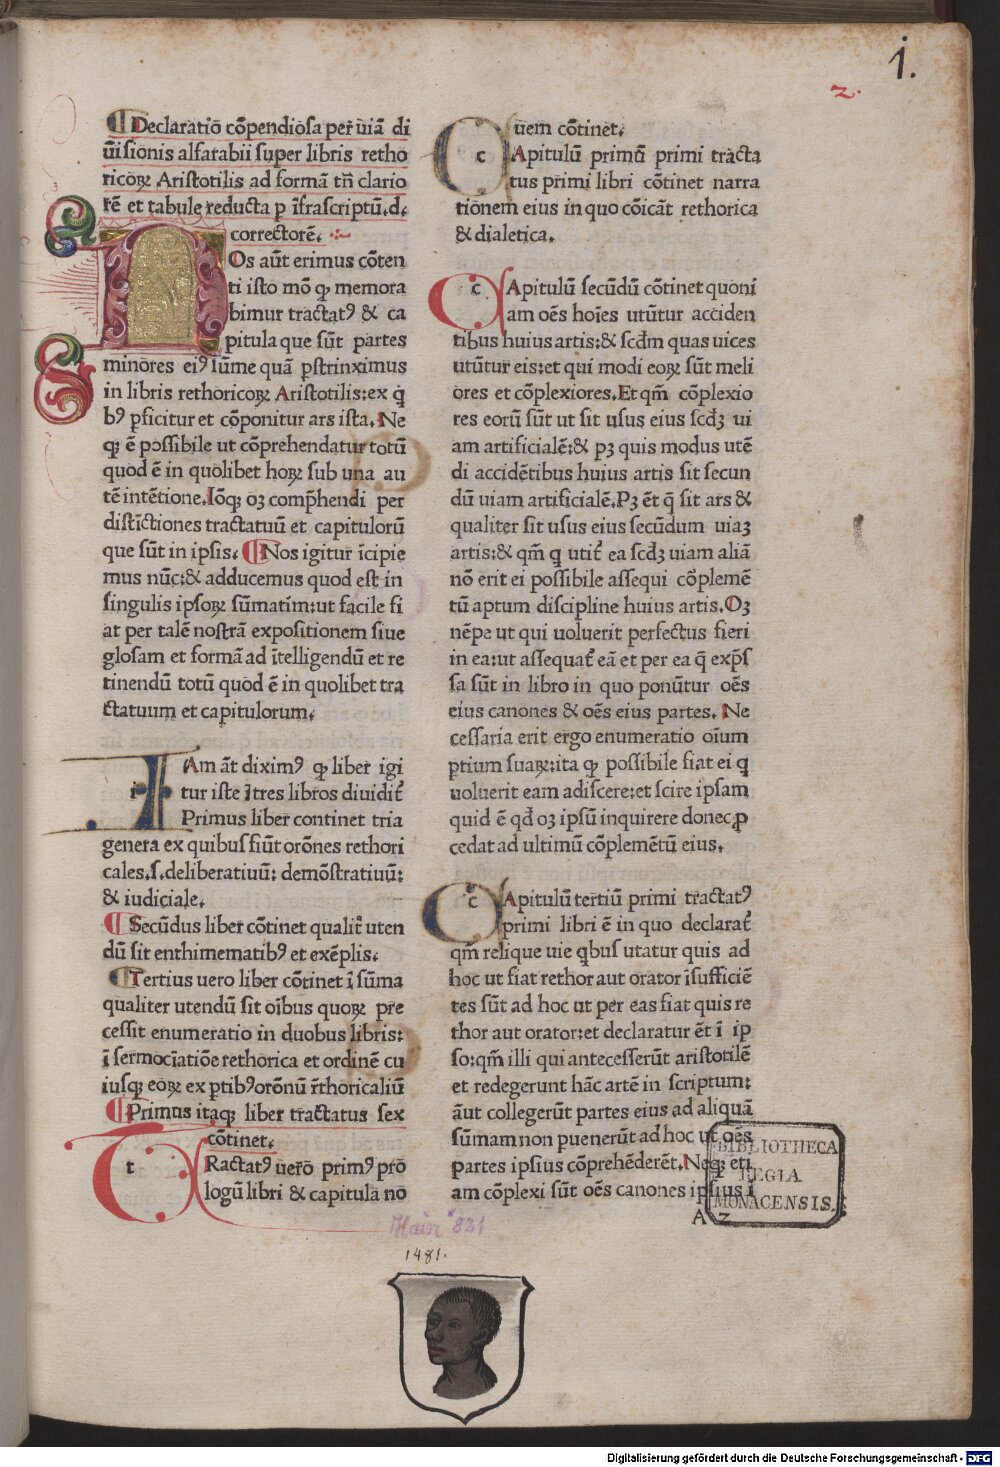 1.
2.
Declaratiō cōpendiōsa per uiā di
uisionis alfarabii super libris retho
ricoꝝ Aristotilis ad formā tn̄ clario
rē et tabule reducta p īfrascriptū.d.
correctorē.
Os aūt erimus cōten
ti isto mō ꝙ memora
bimur tractatꝰ & ca
pitula que sūt partes
minores eiꝰ sūme quā pstrinximus
in libris rethoricoꝝ Aristotilis:ex q̄
bꝰ pficitur et cōponitur ars ista. Ne
qꝫ ē possibile ut cōprehendatur totū
quod ē in quolibet hoꝝ sub una au
tē intētione. Iōqꝫ oꝫ comp̄hendi per
distīctiones tractatuū et capitulorū
que sūt in ipsis. Nos igitur īcipie
mus nūc:& adducemus quod est in
singulis ipsoꝝ sūmatim:ut facile fi
at per talē nostrā expositionem siue
glosam et formā ad ītelligendū et re
tinendū totū quod ē in quolibet tra
ctatuum et capitulorum.
i Am āt diximꝰ ꝙ liber igi
tur iste ī tres libros diuidit᷑
Primus liber continet tria
genera ex quibus fiūt orōnes rethori
cales.ſ.deliberatiuū: demōstratiuū:
& iudiciale.
Secūdus liber cōtinet qualit᷑ uten
dū sit enthimematibꝰ et exēplis.
Tertius uero liber cōtinet ī sūma
qualiter utendū sit oībus quoꝝ pre
cessit enumeratio in duobus libris:
ī sermocīatiōe rethorica et ordinē cu
iusqꝫ eoꝝ ex ptibꝰ orōnū r̄thoricaliū
Primus itaqꝫ liber tractatus sex
cōtinet.
t Ractatꝰ uero primꝰ pro
logū libri & capitula no
uem cōtinet.
c Apitulū primū primi tracta
tus primi libri cōtinet narra
tionem eius in quo cōicāt rethorica
& dialetica.
c Apitulū secūdū cōtinet quoni
am oēs hoīes utūtur acciden
tibus huius artis:& scdm̄ quas uices
utūtur eis:et qui modi eoꝝ sūt meli
ores et cōplexiores. Et qm̄ cōplexio
res eorū sūt ut sit usus eius scdꝫ ui
am artificialē:& pꝫ quis modus utē
di accidētibus huius artis sit secun
dū uiam artificialē. Pꝫ ēt q̄ sit ars &
qualiter sit usus eius secūdum uiaꝫ
artis:& qm̄ q utit᷑ ea scdꝫ uiam aliā
nō erit ei possibile assequi cōplemē
tū aptum discipline huius artis. Oꝫ
nēpe ut qui uoluerit perfectus fieri
in ea:ut assequat᷑ eā et per ea q̄ exp̄s
sa sūt in libro in quo ponūtur oēs
eius canones & oēs eius partes. Ne
cessaria erit ergo enumeratio oīum
ptium suaꝝ:ita ꝙ possibile fiat ei q
uoluerit eam adiscere:et scire ipsam
quid ē qd̄ oꝫ ipsū inquirere donec ꝓ
cedat ad ultimū cōplemētū eius.
c Apitulū tertiū primi tractatꝰ
primi libri ē in quo declarat᷑
qm̄ relique uie qbus utatur quis ad
hoc ut fiat rethor aut orator īsufficiē
tes sūt ad hoc ut per eas fiat quis re
thor aut orator:et declaratur ēt ī ip
so:qm̄ illi qui antecesserūt aristotilē
et redegerunt hāc artē in scriptum:
āut collegerūt partes eius ad aliquā
sūmam non puenerūt ad hoc ut oēs
partes ipsius cōprehēderēt. Neqꝫ eti
am cōplexi sūt oēs canones ipsius ī
A 2
BIBLIOTHECA
REGIA
MONACENSIS.
Hain 821
1481.
Digitalisierung gefördert durch die Deutsche Forschungsgemeinschaft - DFG